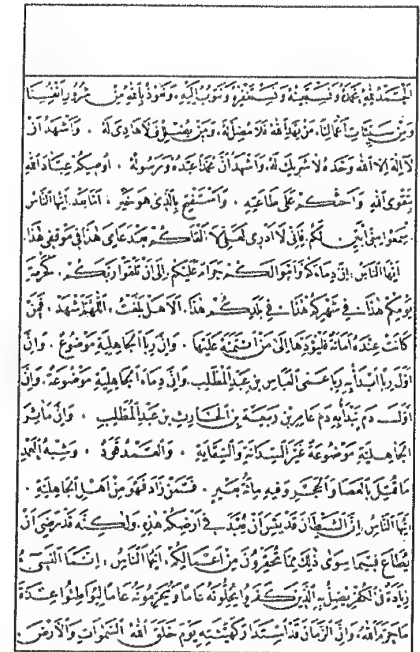 الحمد لله نحمده ونستعينه ونستغفره ونتوب إليه، ونعوذ بالله من شرور أنفسنا
ومن سيئات أعمالنا، من يهد الله فلا مضل له، ومن يضلل فلا هادي له. وأشهد أن
لا إله إلا الله وحده لا شريك له، وأشهد أن محمدا عبده ورسوله. أوصيكم عباد الله
بتقوى الله وأحثكم على طاعته. وأستفتح بالذي هو خير، أما بعد أيها الناس
اسمعوا مني أبين لكم فإني لا أدري لعلي لا ألقاكم بعد عامي هذا في موقفي هذا.
أيها الناس: إن دماءكم وأموالكم حرام عليكم إلى أن تلقوا ربكم، كحرمة
يومكم هذا في شهركم هذا في بلدكم هذا. ألا هل بلغت، اللهم اشهد، فمن
كانت عنده أمانة فليؤدها إلى من ائتمنه عليها. وإن ربا الجاهلية موضوع. وإن
أول ربا أبدأ به ربا عمي العباس بن عبد المطلب. وإن دماء الجاهلية موضوعة. وإن
أول دم نبدأ به دم عامر بن ربيعة بن الحارث بن عبد المطلب. وإن مآثر
الجاهلية موضوعة غير السدانة والسقاية. والعمد قود. وشبه العمد
ما قتل بالعصا والحجر وفيه مائة بعير. فمن زاد فهو من أهل الجاهلية.
أيها الناس: إن الشيطان قد يئس أن يعبد في أرضكم هذه، ولكنه قد رضي أن
يطاع فيما سوى ذلك مما تحقرون من أعمالكم. أيها الناس: إنما النسيء
زيادة في الكفر يضل به الذين كفروا يحلونه عاما ويحرمونه عاما ليواطئوا عدة
ما حرم الله. وإن الزمان قد استدار كهيئته يوم خلق الله السموات والأرض.